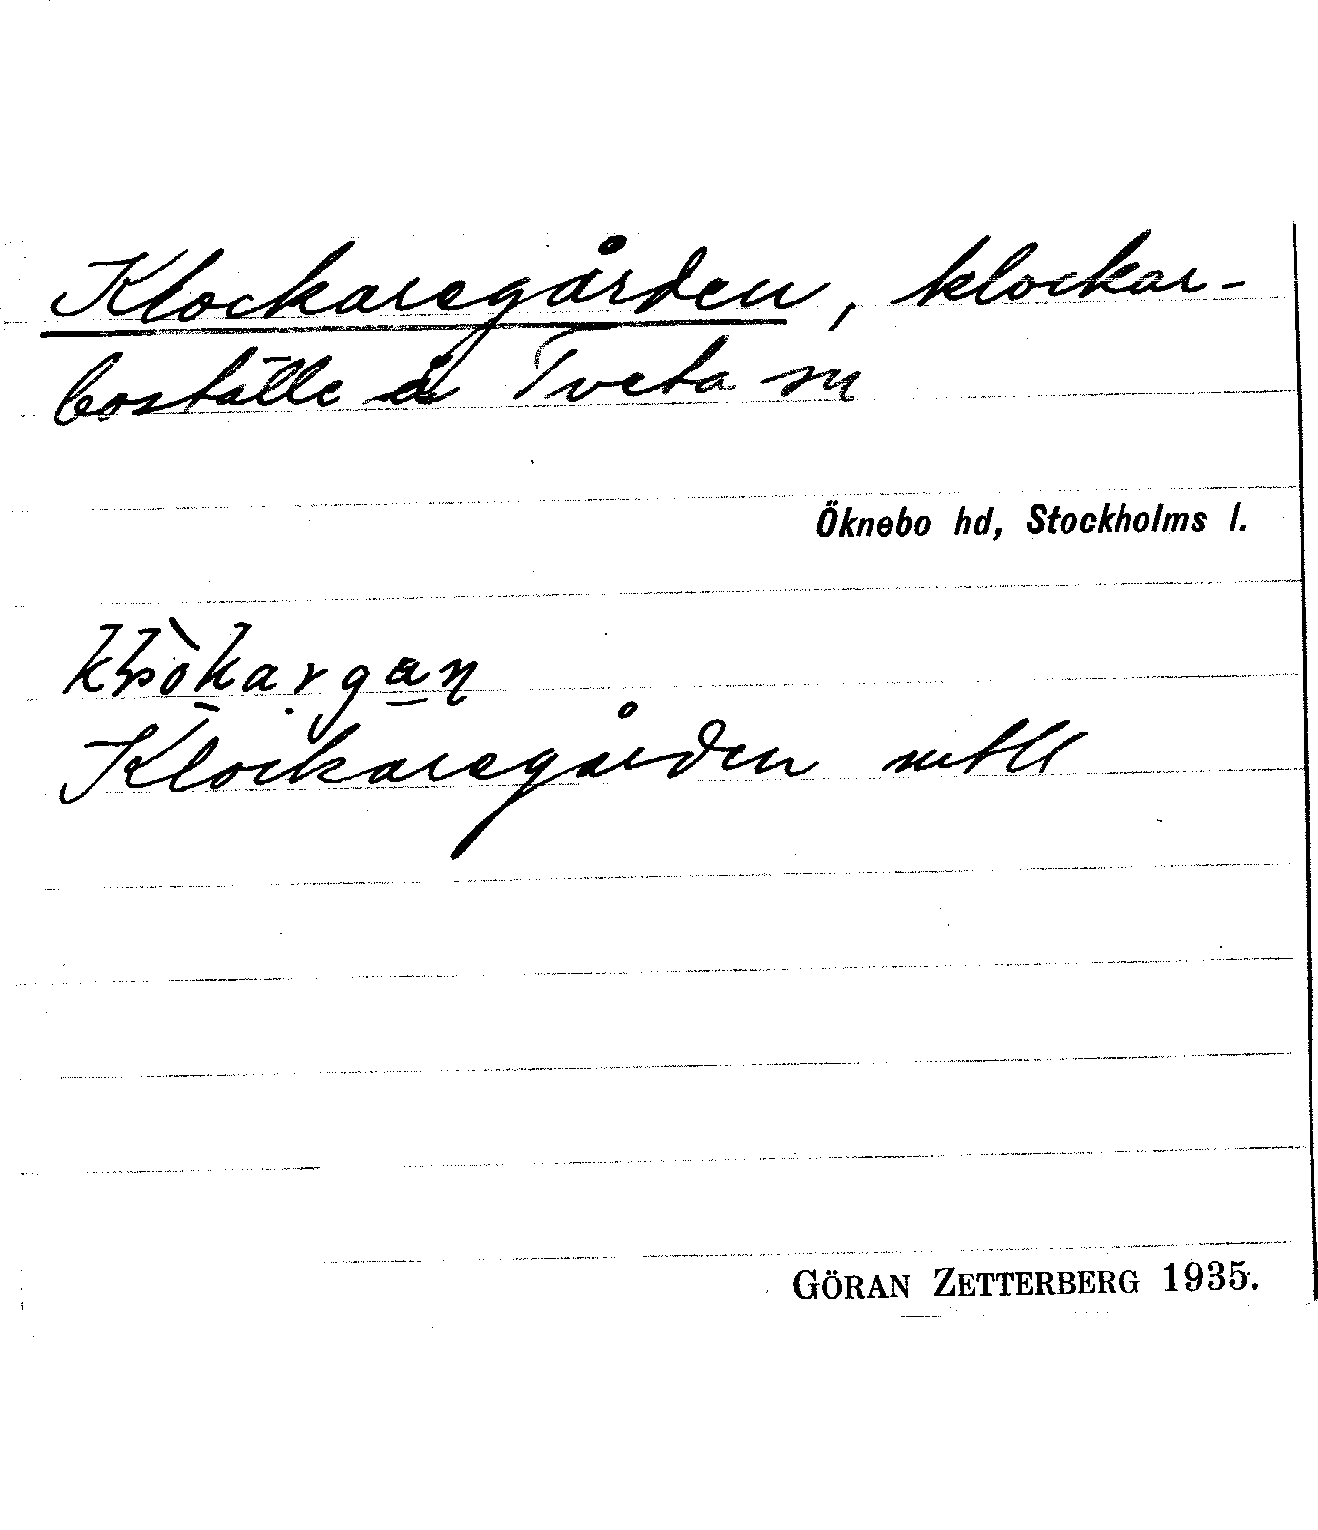 Klockaregården, klockar-
boställe å Tveta sn
Öknebo hd, Stockholms l.
Klockaregården mtll
GÖRAN ZETTERBERG 1935.